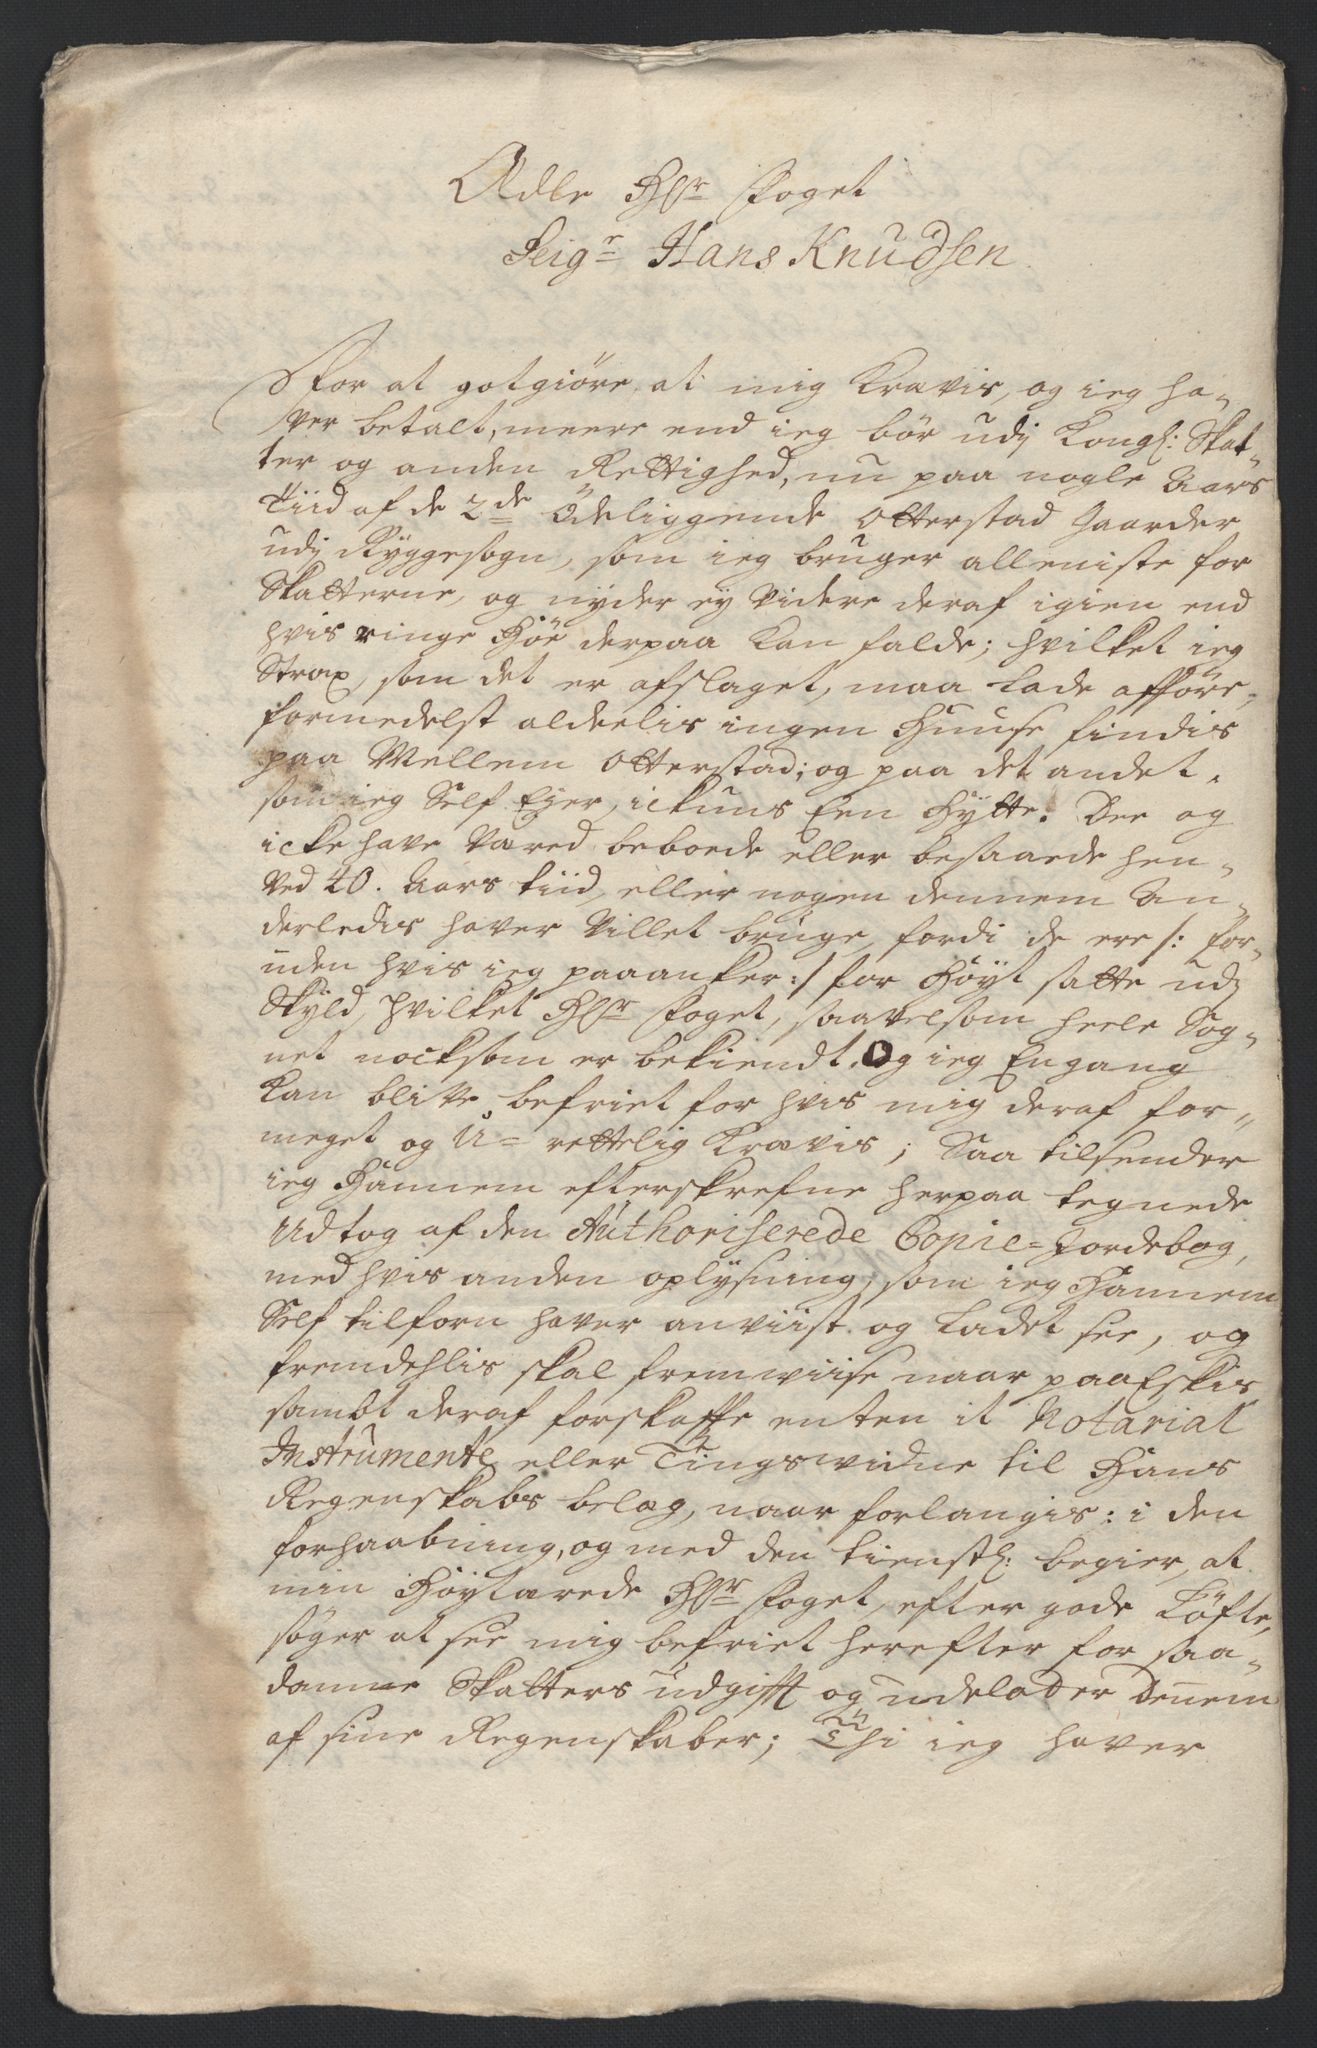 Ædle Hr Foget
Seigr Hans Knudsen
For at gotgiöre, at mig Kravis, og ieg ha-
ver betalt, meere end ieg bör udj Kongl: Skat-
ter og anden Rettighed, nu paa nogle Aars
Tiid af de 2de Ödeliggende Otterstad Gaarder
udj Ryggesogn, som ieg bruger alleniste for
Skatterne, og nyder ey Videre deraf igien end
hvis ringe Höe derpaa Kan falde; hvilket ieg
Strax, som det er afslaget, maa lade afföre,
formedelst aldeelis ingen Huuse findis
paa Mellem Otterstad; og paa det andet,
som ieg Self Eyer, ickuns Een Hytte. Dee og
icke have Væred beboede eller besaaede hen-
ved 40. Aars tiid, eller nogen dennem An-
derledis haver Villet bruge, fordi de ere /: For-
uden hvis ieg paaanker :/ for Höyt satte udj
Skyld, hvilket Hr Foget, saavelsom heele Sog-
net nocksom er bekiendt. Og ieg Engang
Kan blive befriet for hvis mig deraf for-
meget og U= rettelig Kravis; Saa tilsender
ieg Hannem efterskrefne herpaa tegnede
Udtog af den Authoriserede Copie= Jordebog,
med hvis anden oplysning, som ieg Hannem
Self tilforn haver anviist og Ladet see, og
fremdehlis skal fremwiise naar paaEskis
sambt deraf forskaffe enten it Notarial
Instrumente eller Tingswidne til Hans
Regenskabs belæg, naar forlangis: i den
forhaabning, og med den tienstl: begier, at
min Höytærede Hr Foget, efter gode Löfte,
söger at see mig befriet herefter for saa-
danne Skatters udgifft og udelader Dennem
af sine Regenskaber; Thi ieg haver